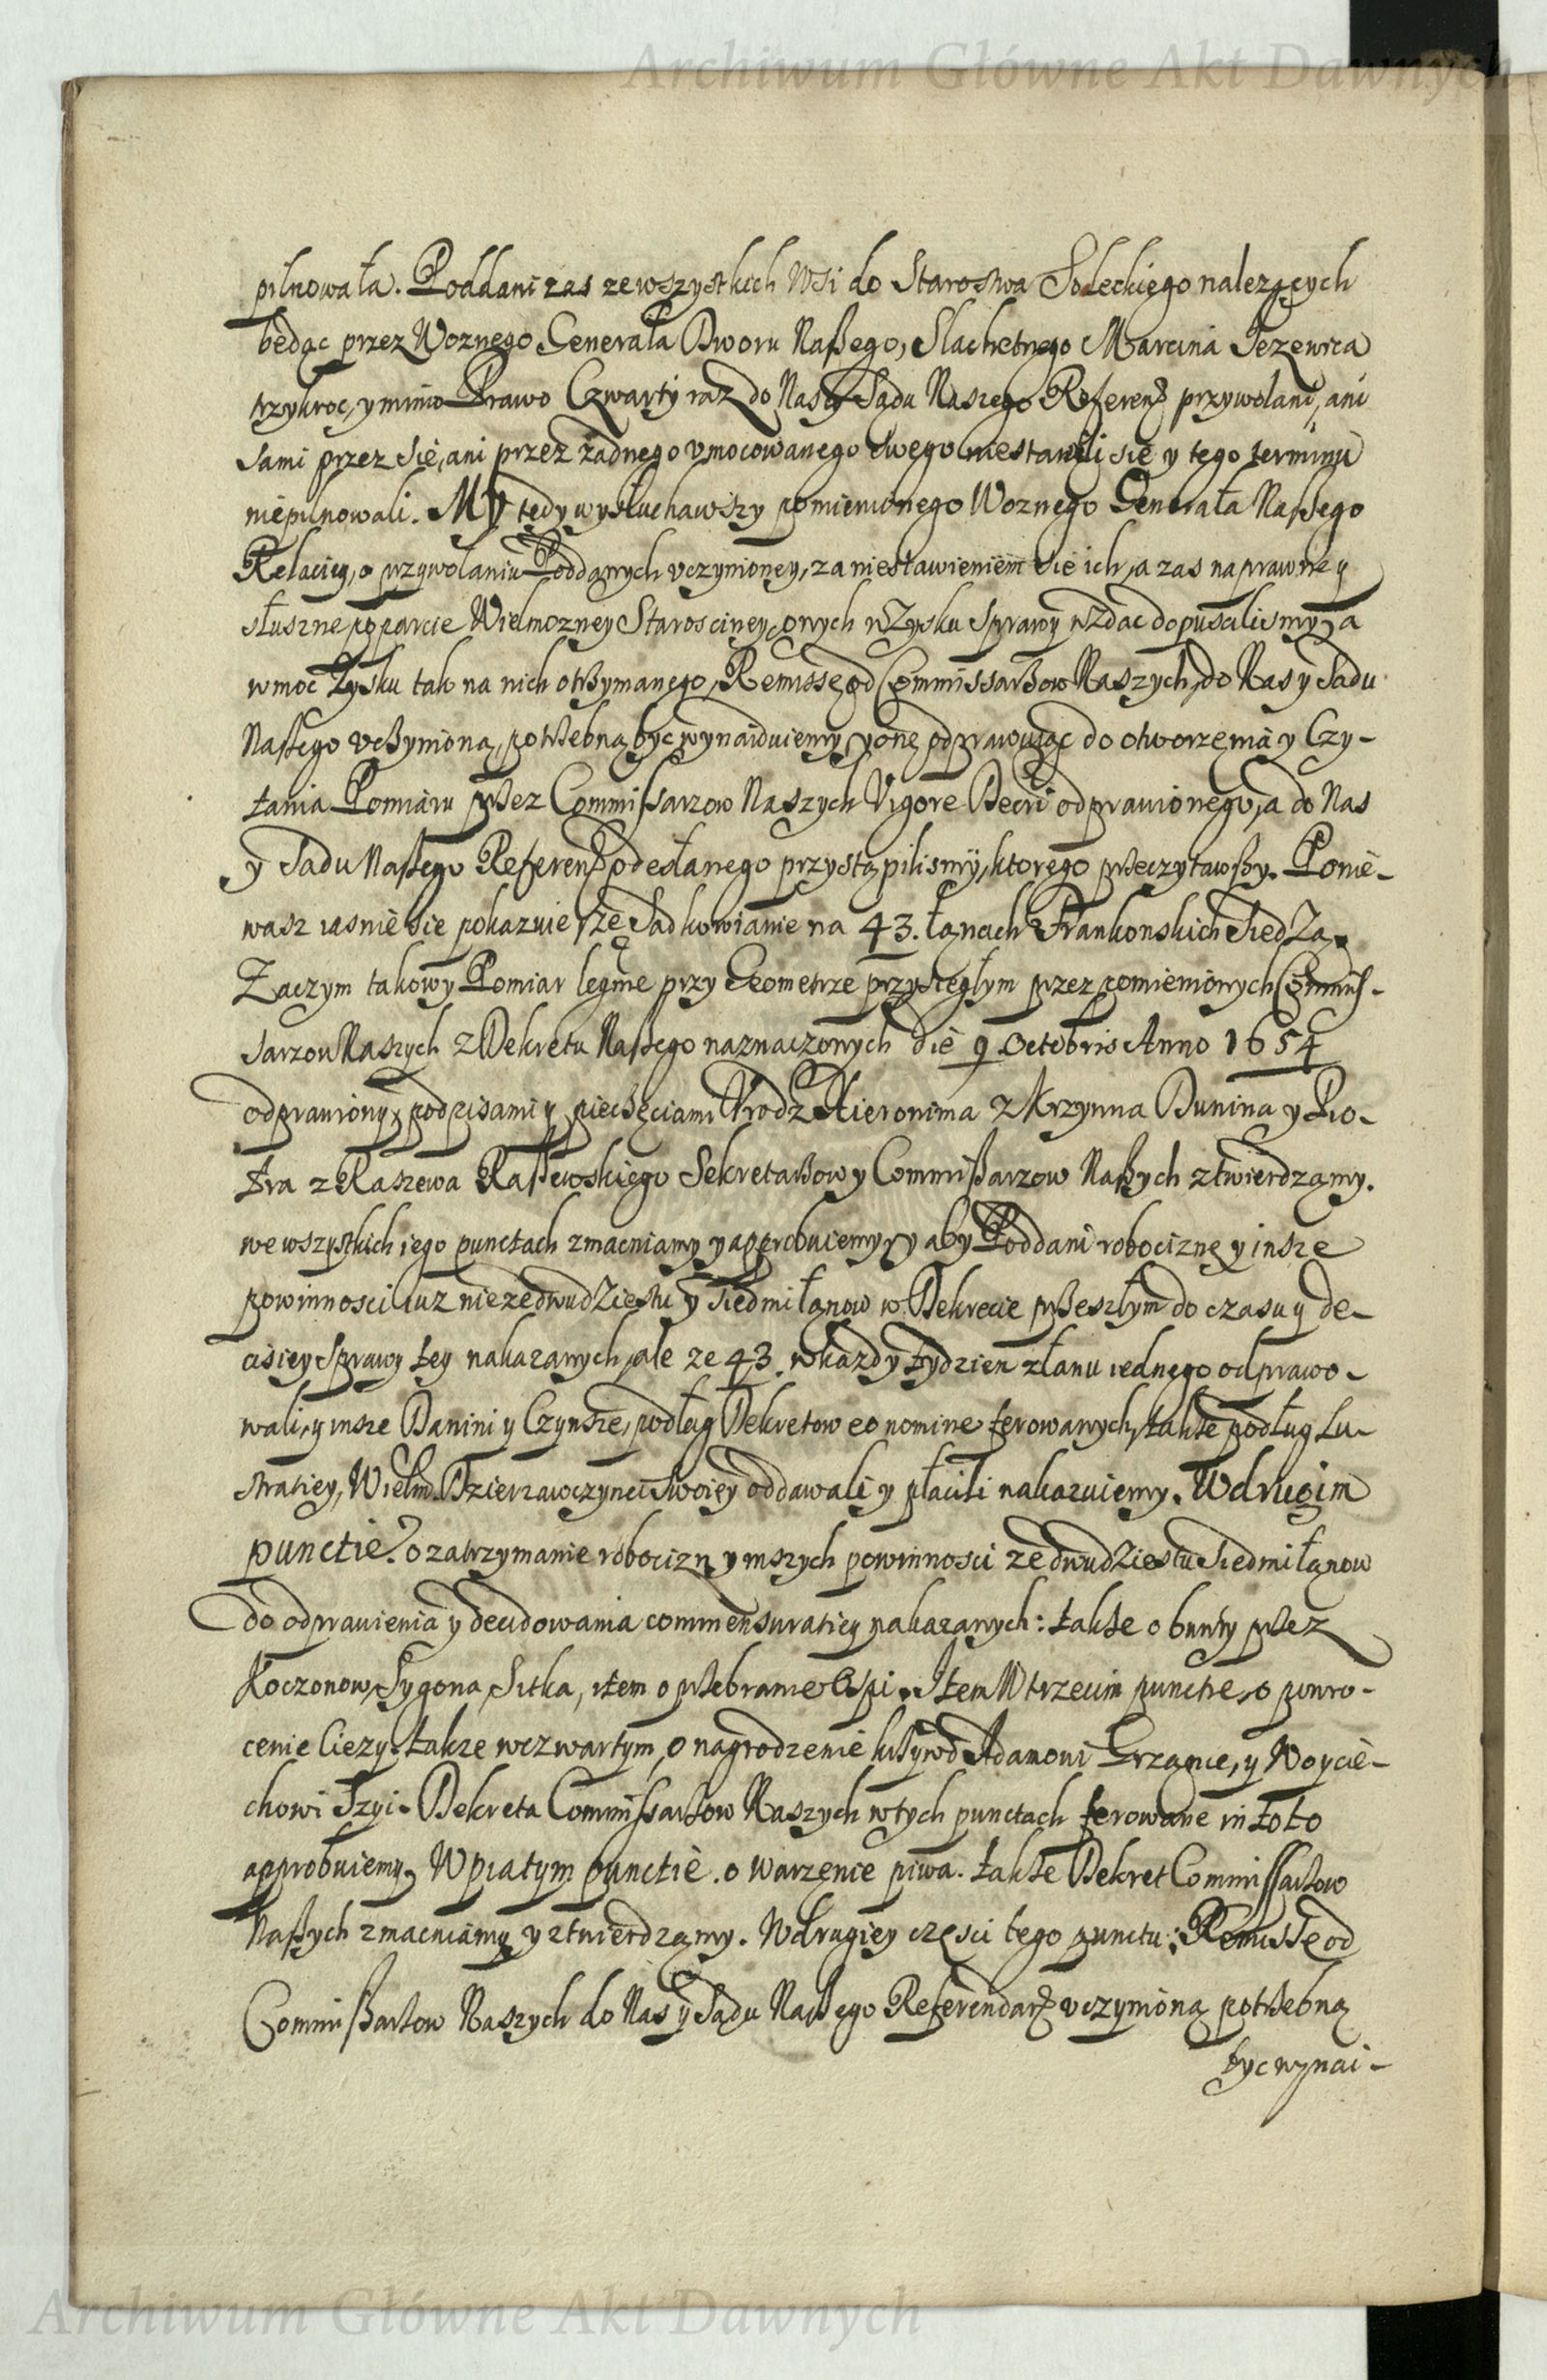 Archiwum Główne Akt Dawnych
pilnowała. Poddani zas ze wszystkich Wsi do Starostwa Soleckiego nalezących
bedąc przez Woznego Generała Dworu Naßego, Slachetnego Marcina Jezewica
trzykroc, y mimo Prawo Czwarty raz do Nas y Sądu Naszego Referend przywolani, ani
sami przez się, ani przez zadnego vmocowanego swego nie stawili się y tego terminu
nie pilnowali. My tedy wysłuchawszy pomienionego Woznego Generała Naßego
Relacięy, o przywolaniu Poddanych vczynioney, za niestawieniem się ich, a zas na prawne y
słuszne poparcie Wielmozney Starosciney, onych w Zysku sprawy wzdac dopuscilismy, a
w moc Zysku tak na nich otrzymanego, Remissę od Commissarzow Naszych, do Nas y Sadu
Naßego vczynioną, potrzebną byc wynaiduiemy, y onę odprawuiąc do otworzenia y Czy-
tania Pomiaru przez Commißarzow Naszych Vigore Decri odprawionego, a do Nas
y Sadu Naßego Referend odesłanego przystąpilismy, ktorego przeczytawßy. Ponie-
wasz iasnie sie pokazuie, ze Sadkowianie na 43. łanach Frankonskich siedzą.
Zaczym takowy Pomiar legme przy Geometrze przysięgłym przez pomienionych Commis-
sarzow Naszych z Dekretu Naßego naznaczonych die 9 Octobris Anno 1654
odprawiony, podpisami y pieczęciami Vrodz Hieronima z Krzynna Dunina y Pio-
tra z Raszewa Raßewskiego Sekretarzow y Commißarzow Naßych ztwierdzamy.
we wszystkich iego punctach zmacniamy y approbuiemy, y aby Poddani robociznę y insze
powinnosci iuz nie ze dwudziestu y siedmi łanow w Dekrecie przeszłym do czasu y de-
cisiey sprawy tey nakazanych, ale ze 43. w kazdy tydzien z łanu iednego odprawo-
wali, y insze Danini y Czynsze, podług Dekretow eo nomine ferowanych, takze podług Lu-
stratiey, Wielm. Dzierzawczynei swoiey oddawali y płacili nakazuiemy. W drugim
punctie. o zatrzymanie robocizn y inszych powinnosci ze dwudziestu siedmi łanow
do odprawienia y decidowania commensuratiey nakazanych: takze o bunty przez
Koczonow, Sygona, Sitka, item o przebranie Ospi. Item W trzecim punctie, o powro-
cenie Ciezy. takze w czwartym, o nagrodzenie krzywd Adamowi Grzance, y Woycie-
chowi Szyi. Dekreta Commißarzow Naszych w tych punctach ferowane in toto
approbuiemy. W piatym punctie. o warzenie piwa. takze Dekret Commissarzow
Naßych zmacniamy y ztwierdzamy. W drugiey części tego punctu, Remissę od
Commißarzow Naszych do Nas y Sądu Naßego Referendarz vczynioną potrzebną
byc wynai-
Archiwum Główne Akt Dawnych